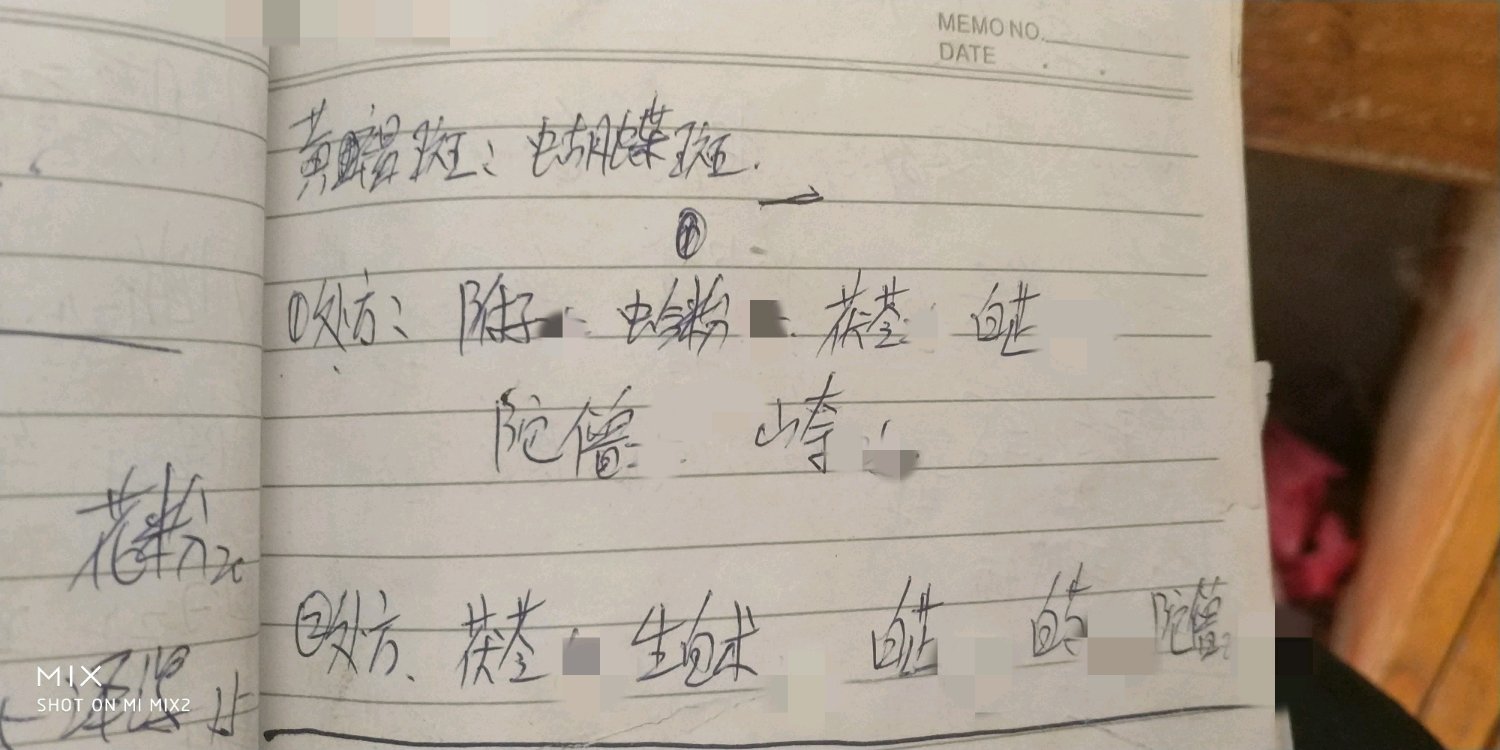 MEMO NO.
DATE
黄褐斑：蝴蝶斑.
①处方： 附子 蛤粉 茯苓 白芷
陀僧 山奈
②处方、茯苓 生白术 白芷 白 陀僧
花粉20
MIX
SHOT ON MI MIX2